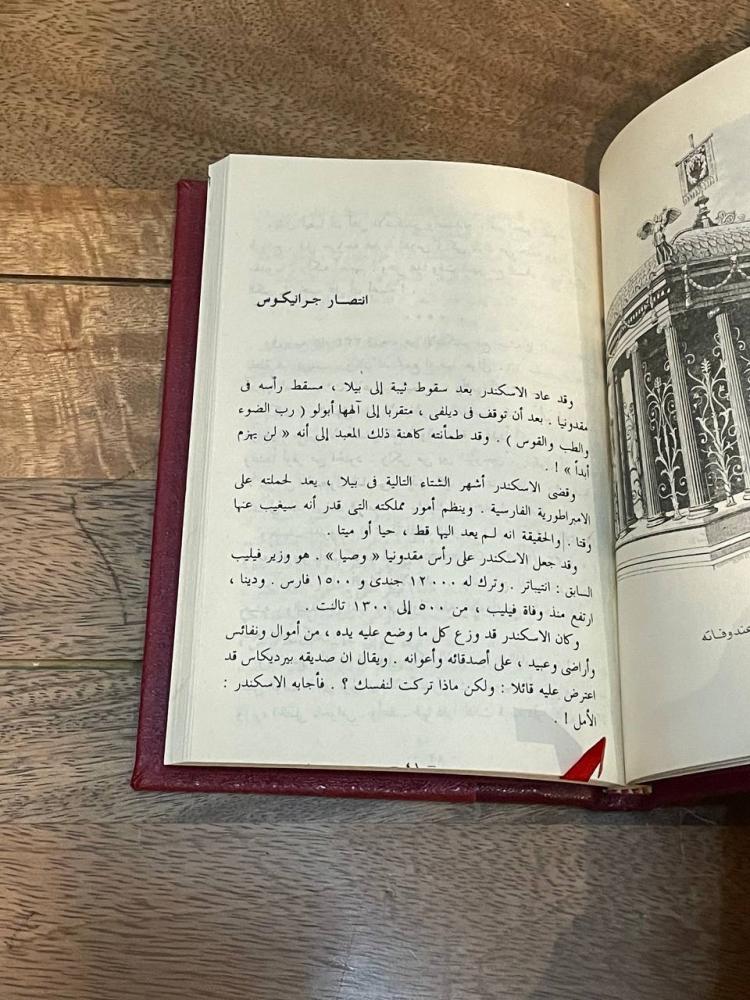 انتصار جرانيكوس
وقد عاد الاسكندر بعد سقوط ثيبة إلى بيلا ، مسقط رأسه فى
مقدونيا . بعد أن توقف فى ديلفى ، متقربا إلى آلهها أبولو ( رب الضوء
والطب والقوس ) . وقد طمأنته كاهنة ذلك المعبد إلى أنه « لن يهزم
أبداً » ! .
وقضى الاسكندر أشهر الشتاء التالية فى بيلا ، يعد لحملته على
الامبراطورية الفارسية . وينظم أمور مملكته التى قدر أنه سيغيب عنها
وقتا . والحقيقة انه لم يعد اليها قط ، حيا أو ميتا .
وقد جعل الاسكندر على رأس مقدونيا « وصيا » . هو وزير فيليب
السابق : انتيباتر . وترك له ١٢٠٠٠ جندى و ١٥٠٠ فارس . ودينا ،
ارتفع منذ وفاة فيليب ، من ٥٠٠ إلى ١٣٠٠ تالنت .
وكان الاسكندر قد وزع كل ما وضع عليه يده ، من أموال ونفائس
وأراضى وعبيد ، على أصدقائه وأعوانه . ويقال ان صديقه بيرديكاس قد
اعترض عليه قائلا : ولكن ماذا تركت لنفسك ؟ . فأجابه الاسكندر :
الأمل ! .